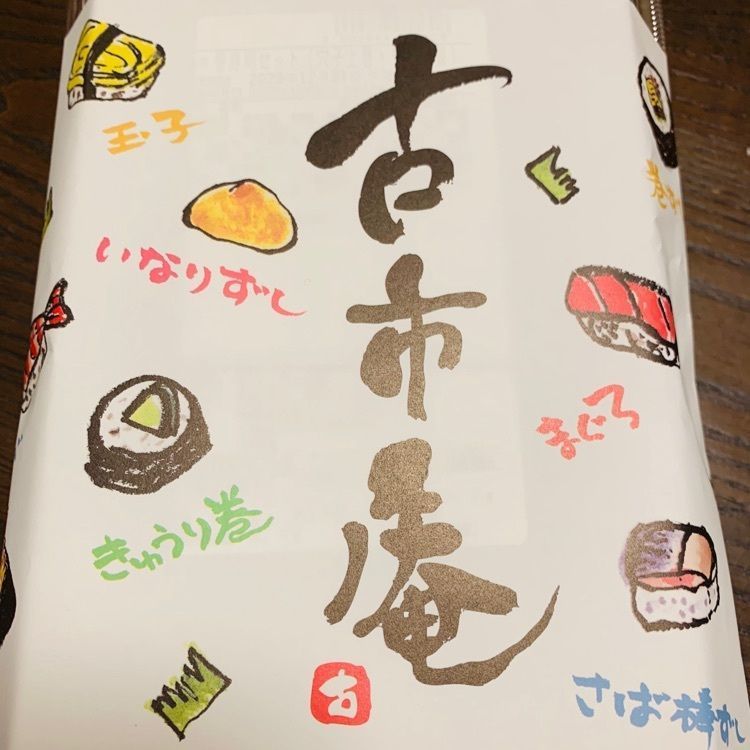 古市庵
玉子
いなりずし
きゅうり巻
巻ず
まぐろ
さば棒ずし
古